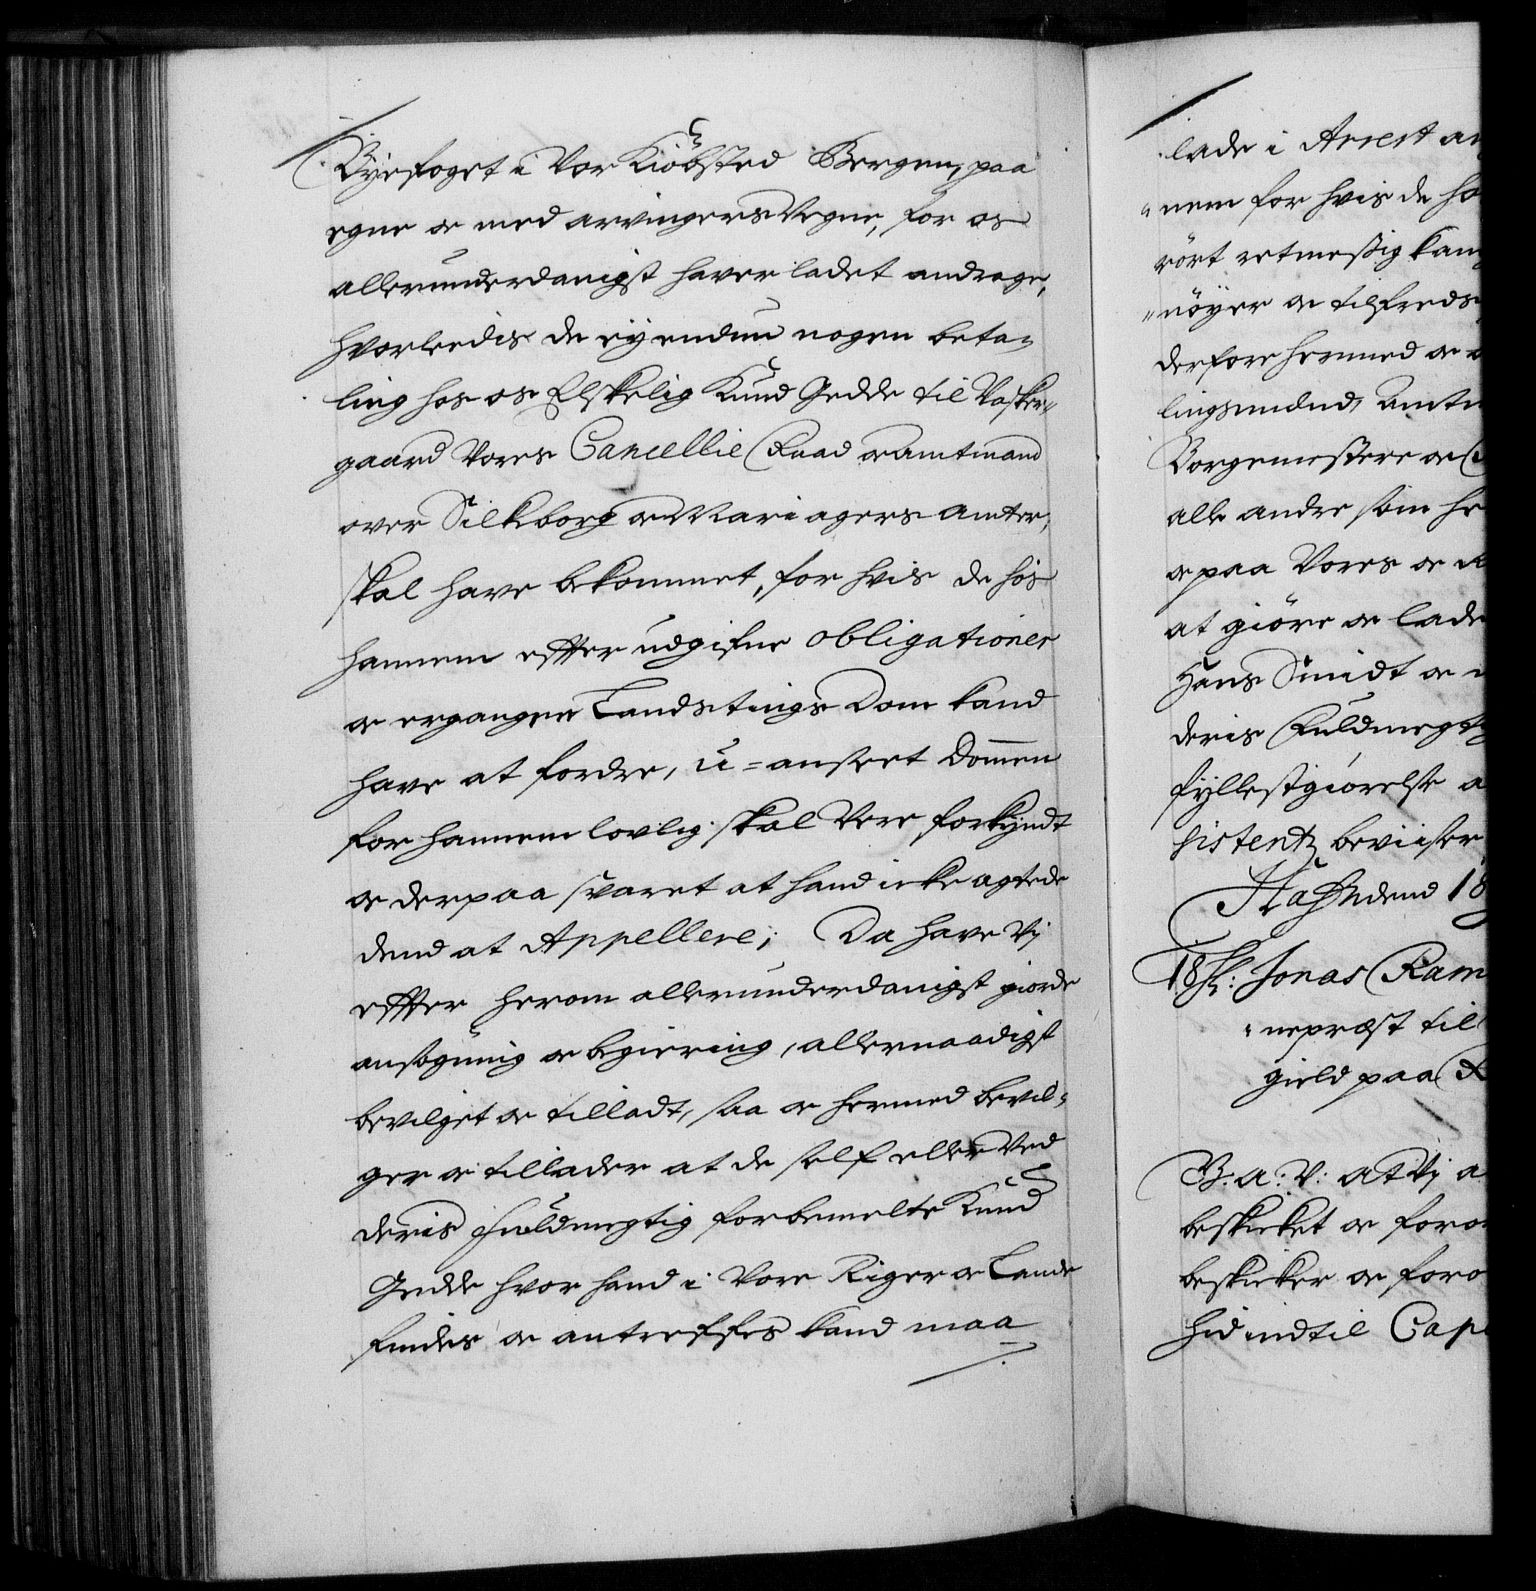 Byefoget i Vor Kiöbsted Bergen, paa
egne og med arvingers Vegne, for os
allerunderdanigst haver ladet andrage,
hvorledis de ey endnu nogen beta-
ling hos os Elskelig Knud Gedde til Vosker-
gaard Vores Cancellie Raad og Amtmand
over Silkborg og Mariagers Amter,
skal have bekommet, for hvis de hos
hannem effter udgifne obligationer
og ergangen Landstings Dom kand
have at fordre, u-anseet Dom̄en
for hannem lovlig skal Vere forkyndt
og derpaa svaret at hand icke agtede
dend at Appellere; Da have Vj
effter herom allerunderdanigst giorde
ansögning og begiering, allernaadigst
bevilget og tilladt, saa og hermed bevil-
ger og tillader at de self eller Ved
deris fuldmegtig forbemelte Knud
Gedde hvor hand i Vore Riger og Lande
findes og antreffes kand maa
lade i Arrest an
nem for hvis de ho
rört retmessig kand
nöyer og tilfreds
derfore hermed og
lingsmænd, Amtm
Borgemestere og
alle andre som he
og paa Vores og
at giöre og lade
Hans Smidt og
deris Fuldmegtig
fyllestgiörelse a
sistentz beviiser
Haffn dend 18
18 Jonas Ram
nepræst til
gield paa
B: a: V: at Vj a
beskicket og foror
beskicker og foro
hid indtil Cape